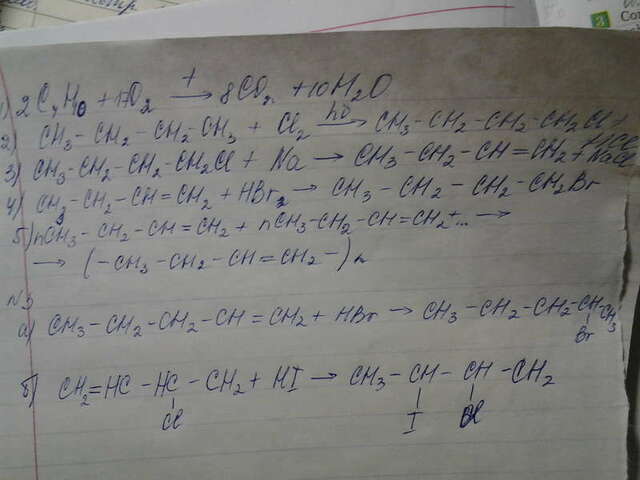 1) 2C4H10 + 17O2 →t 8CO2 + 10H2O
2) CH3-CH2-CH2-CH3 + Cl2 →hν CH3-CH2-CH2-CH2Cl + HCl
3) CH3-CH2-CH2-CH2Cl + Na → CH3-CH2-CH=CH2 + NaCl
4) CH3-CH2-CH=CH2 + HBr → CH3-CH2-CH2-CH2Br
5) nCH3-CH2-CH=CH2 + nCH3-CH2-CH=CH2+... →
→ (-CH3-CH2-CH=CH2-)n
№3
а) CH3-CH2-CH2-CH=CH2 + HBr → CH3-CH2-CH2-CH-CH3
Br
б) CH2=HC-HC-CH2 + HI → CH3-CH-CH-CH2
Cl I Cl